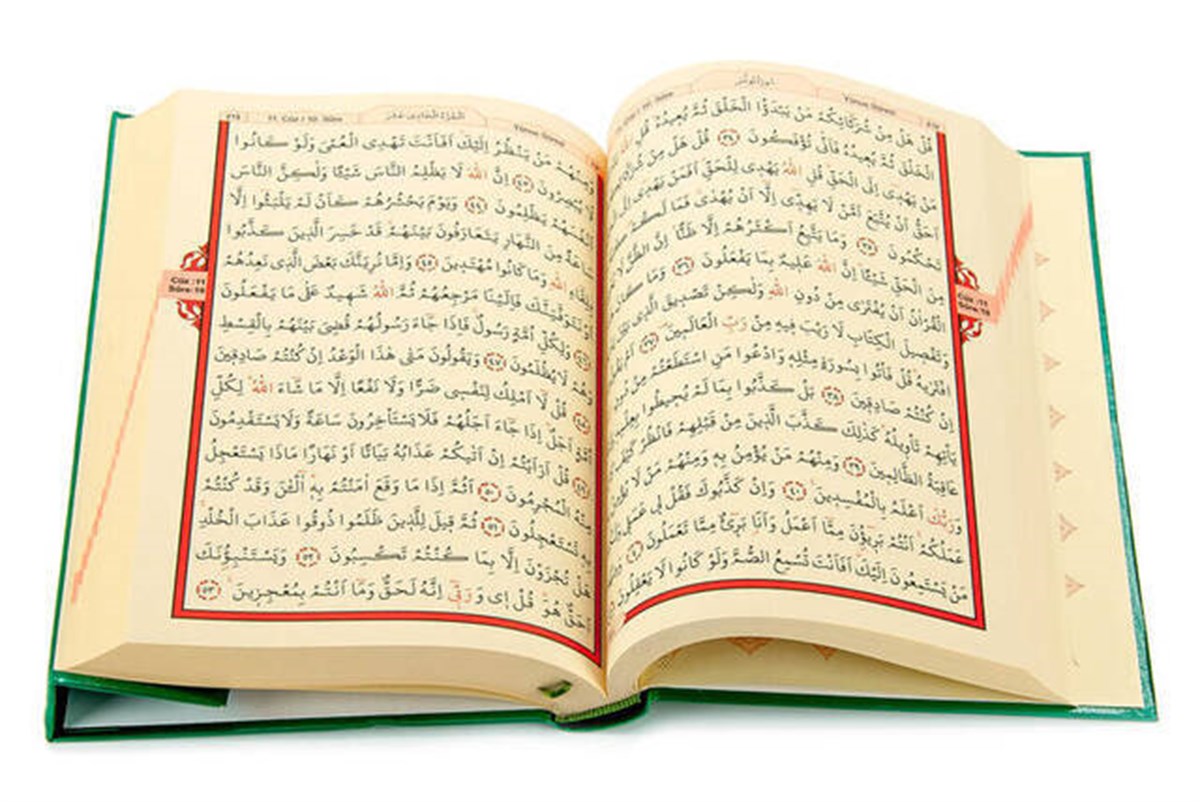 سورة يونس
Cüz / 10. Sûre
Yûnus Sûresi
قُلْ هَلْ مِنْ شُرَكَائِكُمْ مَنْ يَبْدَؤُا الْخَلْقَ ثُمَّ يُعِيدُهُ قُلِ
الْخَلْقَ ثُمَّ يُعِيدُهُ فَاَنّٰى تُؤْفَكُونَ ﴿٣٤﴾ قُلْ هَلْ مِنْ
مَنْ يَهْدِى اِلَى الْحَقِّ قُلِ اللّٰهُ يَهْدِى لِلْحَقِّ اَفَمَنْ يَهْدِى
اَحَقُّ اَنْ يُتَّبَعَ اَمَّنْ لَا يَهِدِّى اِلَّا اَنْ يُهْدٰى فَمَا لَكُمْ
تَحْكُمُونَ ﴿٣٥﴾ وَمَا يَتَّبِعُ اَكْثَرُهُمْ اِلَّا ظَنًّا اِنَّ الظَّنَّ
مِنَ الْحَقِّ شَيْئًا اِنَّ اللّٰهَ عَلِيمٌ بِمَا يَفْعَلُونَ ﴿٣٦﴾ وَمَا كَانَ
الْقُرْاٰنُ اَنْ يُفْتَرٰى مِنْ دُونِ اللّٰهِ وَلٰكِنْ تَصْدِيقَ الَّذِى
وَتَفْصِيلَ الْكِتَابِ لَا رَيْبَ فِيهِ مِنْ رَبِّ الْعَالَمِينَ ﴿٣٧﴾
افْتَرٰيهُ قُلْ فَأْتُوا بِسُورَةٍ مِثْلِهِ وَادْعُوا مَنِ اسْتَطَعْتُمْ مِنْ
اِنْ كُنْتُمْ صَادِقِينَ ﴿٣٨﴾ بَلْ كَذَّبُوا بِمَا لَمْ يُحِيطُوا
يَأْتِهِمْ تَأْوِيلُهُ كَذٰلِكَ كَذَّبَ الَّذِينَ مِنْ قَبْلِهِمْ فَانْظُرْ
عَاقِبَةُ الظَّالِمِينَ ﴿٣٩﴾ وَمِنْهُمْ مَنْ يُؤْمِنُ بِهِ وَمِنْهُمْ مَنْ لَا
وَرَبُّكَ اَعْلَمُ بِالْمُفْسِدِينَ ﴿٤٠﴾ وَاِنْ كَذَّبُوكَ فَقُلْ لِى عَمَلِى
عَمَلُكُمْ اَنْتُمْ بَرِيؤُنَ مِمَّا اَعْمَلُ وَاَنَا بَرِىءٌ مِمَّا تَعْمَلُونَ
مَنْ يَسْتَمِعُونَ اِلَيْكَ اَفَاَنْتَ تُسْمِعُ الصُّمَّ وَلَوْ كَانُوا لَا يَعْقِلُونَ
Cüz :11
Sûre:10
11. Cüz / 10. Sûre
الجزء الحادى عشر
Yûnus Sûresi
وَمِنْهُمْ مَنْ يَنْظُرُ اِلَيْكَ اَفَاَنْتَ تَهْدِى الْعُمْىَ وَلَوْ كَانُوا
لَا يُبْصِرُونَ ﴿٤٣﴾ اِنَّ اللّٰهَ لَا يَظْلِمُ النَّاسَ شَيْئًا وَلٰكِنَّ النَّاسَ
اَنْفُسَهُمْ يَظْلِمُونَ ﴿٤٤﴾ وَيَوْمَ يَحْشُرُهُمْ كَاَنْ لَمْ يَلْبَثُوا اِلَّا
سَاعَةً مِنَ النَّهَارِ يَتَعَارَفُونَ بَيْنَهُمْ قَدْ خَسِرَ الَّذِينَ كَذَّبُوا
بِلِقَاءِ اللّٰهِ وَمَا كَانُوا مُهْتَدِينَ ﴿٤٥﴾ وَاِمَّا نُرِيَنَّكَ بَعْضَ الَّذِى نَعِدُهُمْ
اَوْ نَتَوَفَّيَنَّكَ فَاِلَيْنَا مَرْجِعُهُمْ ثُمَّ اللّٰهُ شَهِيدٌ عَلٰى مَا يَفْعَلُونَ
﴿٤٦﴾ وَلِكُلِّ اُمَّةٍ رَسُولٌ فَاِذَا جَاءَ رَسُولُهُمْ قُضِىَ بَيْنَهُمْ بِالْقِسْطِ
وَهُمْ لَا يُظْلَمُونَ ﴿٤٧﴾ وَيَقُولُونَ مَتٰى هٰذَا الْوَعْدُ اِنْ كُنْتُمْ صَادِقِينَ
﴿٤٨﴾ قُلْ لَا اَمْلِكُ لِنَفْسِى ضَرًّا وَلَا نَفْعًا اِلَّا مَا شَاءَ اللّٰهُ لِكُلِّ
اُمَّةٍ اَجَلٌ اِذَا جَاءَ اَجَلُهُمْ فَلَا يَسْتَأْخِرُونَ سَاعَةً وَلَا يَسْتَقْدِمُونَ
﴿٤٩﴾ قُلْ اَرَاَيْتُمْ اِنْ اَتٰيكُمْ عَذَابُهُ بَيَاتًا اَوْ نَهَارًا مَاذَا يَسْتَعْجِلُ
مِنْهُ الْمُجْرِمُونَ ﴿٥٠﴾ اَثُمَّ اِذَا مَا وَقَعَ اٰمَنْتُمْ بِهِ اٰلْـٰٔنَ وَقَدْ كُنْتُمْ
بِهِ تَسْتَعْجِلُونَ ﴿٥١﴾ ثُمَّ قِيلَ لِلَّذِينَ ظَلَمُوا ذُوقُوا عَذَابَ الْخُلْدِ
هَلْ تُجْزَوْنَ اِلَّا بِمَا كُنْتُمْ تَكْسِبُونَ ﴿٥٢﴾ وَيَسْتَنْبِؤُنَكَ
اَحَقٌّ هُوَ قُلْ اِى وَرَبِّى اِنَّهُ لَحَقٌّ وَمَا اَنْتُمْ بِمُعْجِزِينَ ﴿٥٣﴾
Cüz :11
Sûre:10